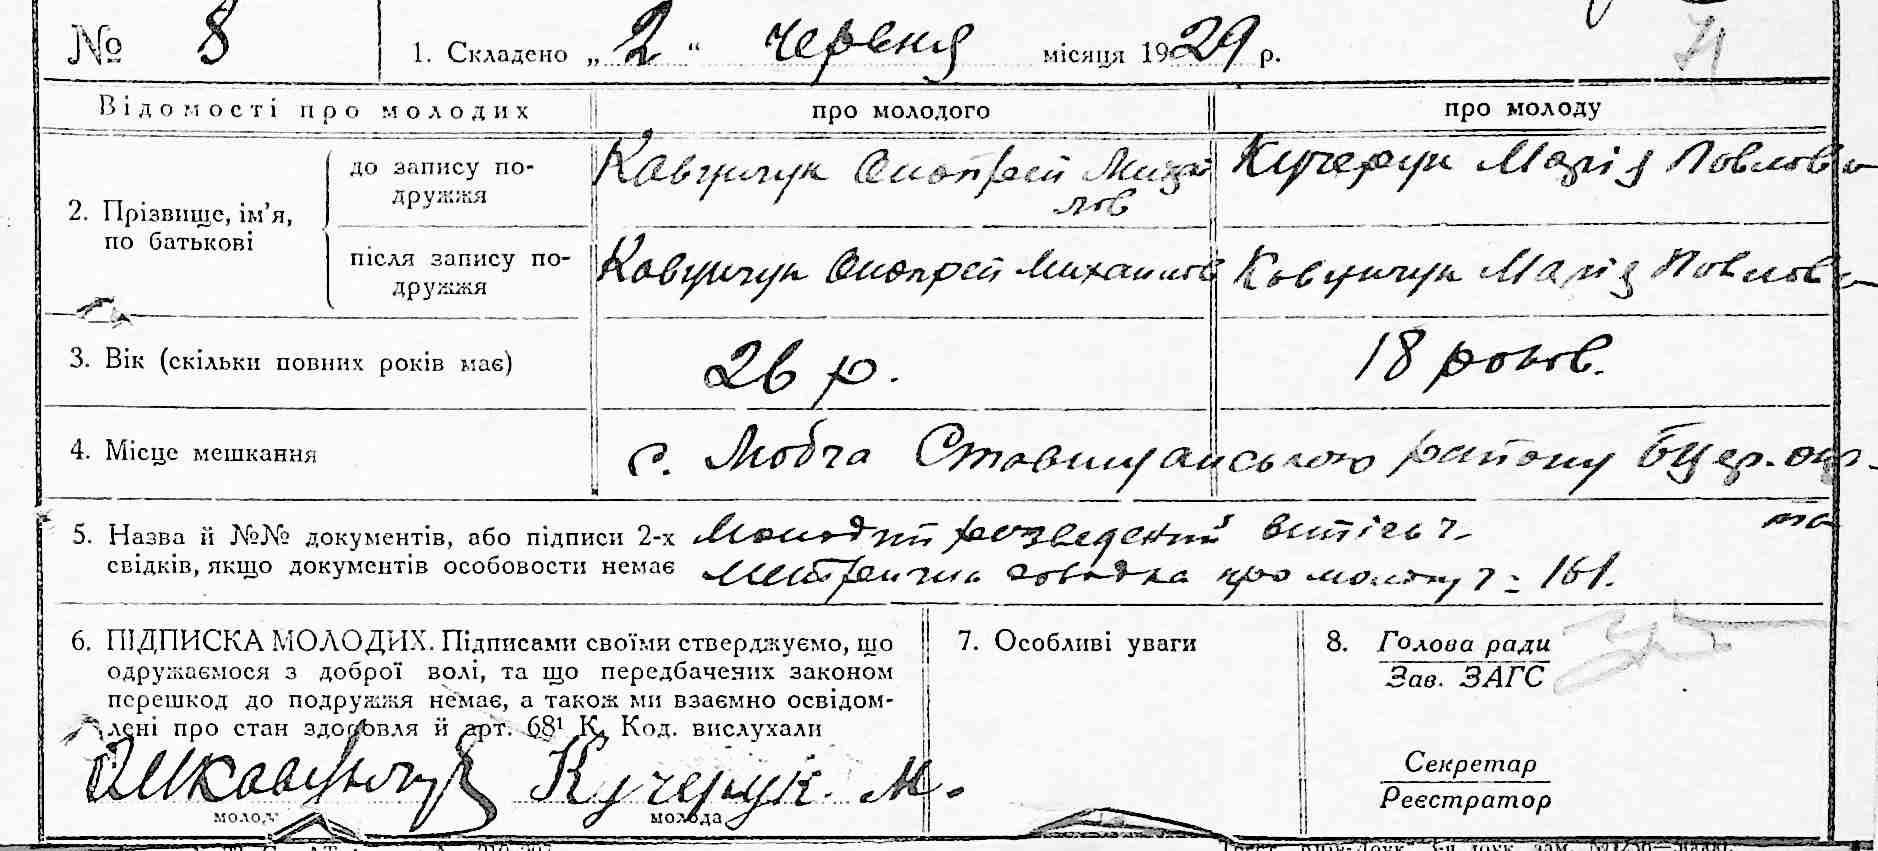 № 8 1. Складено „2“ червня місяця 1929 р. 71
Відомості про молодих про молодого про молоду
2. Прізвище, ім’я, по батькові
до запису подружжя Кавунчук Онопрей Михайлов Кучерук МаріяПовлова
після запису подружжя Кавунчук Онопрей Михайлов Ковунчук Марія Повлова
3. Вік (скільки повних років має) 26 р. 18 роков.
4. Місце мешкання с. Любча Ставищанського району Бцер. окр.
5. Назва й №№ документів, або підписи 2-х Молодий розведений витісь
свідків, якщо документів особовости немає довідка про молоду 161.
6. ПІДПИСКА МОЛОДИХ. Підписами своїми стверджуємо, що
одружаємося з доброї волі, та що передбачених законом
перешкод до подружжя немає, а також ми взаємно освідом-
лені про стан здоровля й арт. 68¹ К. Код. вислухали
Кучерук. М.
молода
7. Особливі уваги
8. Голова ради
Зав. ЗАГС
Секретар
Реєстратор